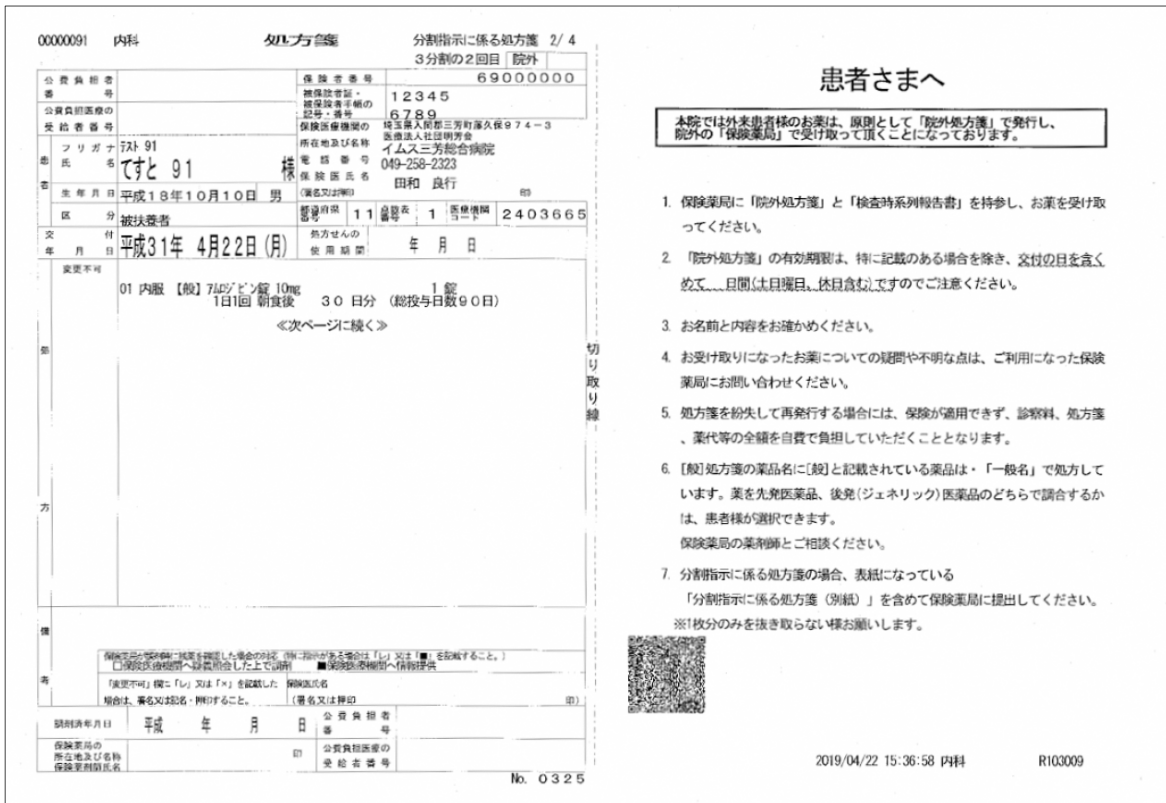 00000091 内科 処方箋 分割指示に係る処方箋 2/4
3分割の2回目 院外
公費負担者番号
保険者番号 69000000
公費負担医療の受給者番号
被保険者証・被保険者手帳の記号・番号 12345
6789
患者
フリガナ テスト 91
氏名 てすと 91 様
生年月日 平成18年10月10日 男
区分 被扶養者
保険医療機関の所在地及び名称 埼玉県入間郡三芳町藤久保974-3
医療法人社団明芳会
イムス三芳総合病院
電話番号 049-258-2323
保険医氏名 田和 良行
(署名又は押印) 印
都道府県番号 11 点数表番号 1 医療機関コード 2403665
交付年月日 平成31年 4月22日(月)
処方せんの使用期間 年 月 日
処方
変更不可
01 内服 【般】アムロジピン錠 10mg 1 錠
1日1回 朝食後 30 日分 (総投与日数90日)
≪次ページに続く≫
切り取り線
備考
保険薬局が調剤時に残薬を確認した場合の対応(特に指示がある場合は「レ」又は「■」を記載すること。)
□保険医療機関へ疑義照会した上で調剤 ■保険医療機関へ情報提供
「変更不可」欄に「レ」又は「×」を記載した
場合は、署名又は記名・押印すること。
保険医氏名
(署名又は押印 印)
調剤済年月日 平成 年 月 日
公費負担者番号
保険薬局の所在地及び名称
保険薬剤師氏名 印
公費負担医療の受給者番号
No. 0325
患者さまへ
本院では外来患者様のお薬は、原則として「院外処方箋」で発行し、
院外の「保険薬局」で受け取って頂くことになっております。
1. 保険薬局に「院外処方箋」と「検査時系列報告書」を持参し、お薬を受け取
ってください。
2. 「院外処方箋」の有効期限は、特に記載のある場合を除き、交付の日を含く
めて 日間(土日曜日、休日含む)ですのでご注意ください。
3. お名前と内容をお確かめください。
4. お受け取りになったお薬についての疑問や不明な点は、ご利用になった保険
薬局にお問い合わせください。
5. 処方箋を紛失して再発行する場合には、保険が適用できず、診察料、処方箋
、薬代等の全額を自費で負担していただくこととなります。
6. [般]処方箋の薬品名に[般]と記載されている薬品は・「一般名」で処方して
います。薬を先発医薬品、後発(ジェネリック)医薬品のどちらで調合するか
は、患者様が選択できます。
保険薬局の薬剤師とご相談ください。
7. 分割指示に係る処方箋の場合、表紙になっている
「分割指示に係る処方箋(別紙)」を含めて保険薬局に提出してください。
※1枚分のみを抜き取らない様お願いします。
2019/04/22 15:36:58 内科 R103009